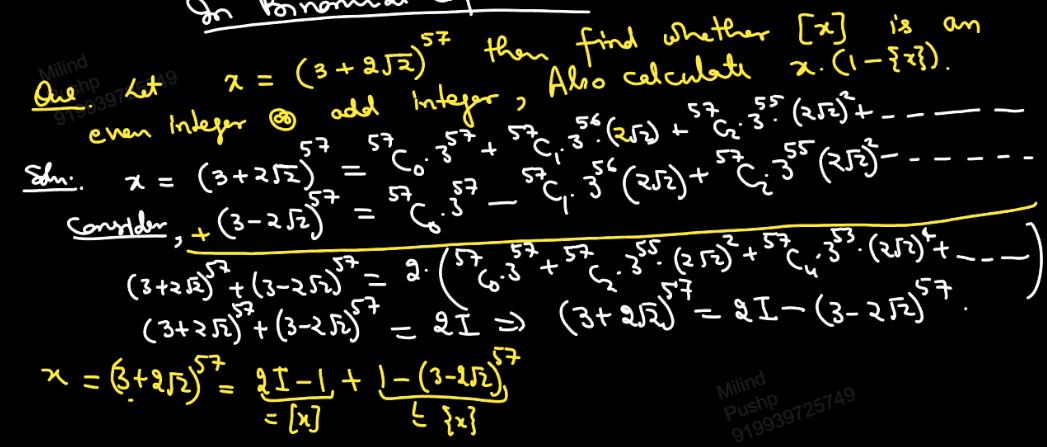 In Binomial
Que. Let x = (3+2√2)^57 then find whether [x] is an
even Integer or odd Integer, Also calculate x.(1-{x}).
Soln:. x = (3+2√2)^57 = ^57C₀.3^57 + ^57C₁.3^56.(2√2) + ^57C₂.3^55.(2√2)^2+ - - - - -
Consider, + (3-2√2)^57 = ^57C₀.3^57 - ^57C₁.3^56(2√2) + ^57C₂.3^55(2√2)^2 - - - - - -
(3+2√2)^57+(3-2√2)^57 = 2.(^57C₀.3^57 + ^57C₂.3^55.(2√2)^2 + ^57C₄.3^53.(2√2)^4+ - - -)
(3+2√2)^57+(3-2√2)^57 = 2I ⇒ (3+2√2)^57 = 2I-(3-2√2)^57.
x = (3+2√2)^57 = 2I-1 + 1-(3-2√2)^57
= [x] = {x}
Milind
Pushp
919939725749
Milind
Pushp
919939725749